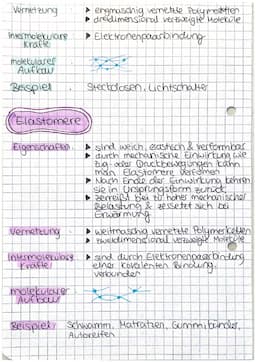 Vernetzung ▸ engmaschig vernetzte Polymerketten
▸ dreidimensional verzweigte Moleküle
Intermolekulare Kräfte ▸ Elektronenpaarbindung
molekularer Aufbau
Beispiel Steckdosen, Lichtschalter
Elastomere
Eigenschaften ▸ sind weich, elastisch & verformbar
▸ durch mechanische Einwirkung wie
Zug- oder Druckbewegungen kann
man Elastomere verformen
▸ Nach Ende der Einwirkung kehren
sie in Ursprungsform zurück
▸ zerreißt bei zu hoher mechanischer
Belastung & zersetzt sich bei
Erwärmung
Vernetzung ▸ weitmaschig vernetzte Polymerketten
▸ zweidimensional verzweigte Moleküle
Intermolekulare Kräfte ▸ sind durch Elektronenpaarbindung
einer kovalenten Bindung,
verbunden
molekularer Aufbau
Beispiel: Schwamm, Matratzen, Gummibänder,
Autoreifen